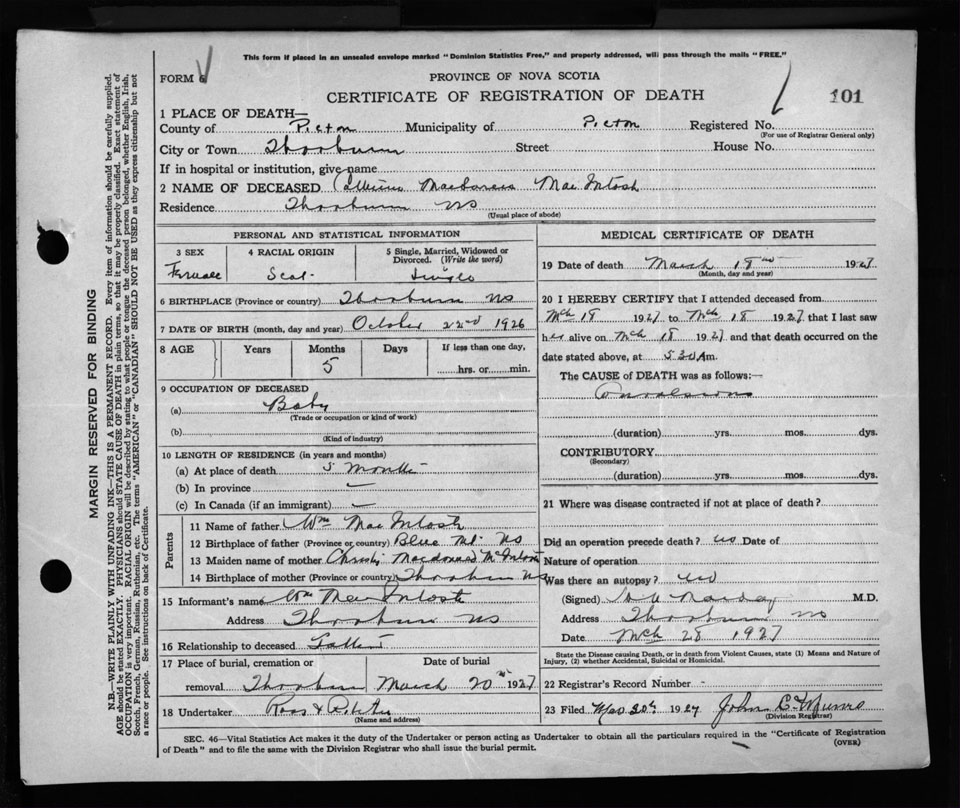 This form if placed in an unsealed envelope marked "Dominion Statistics Free," and properly addressed, will pass through the mails "FREE."
FORM 6
PROVINCE OF NOVA SCOTIA
CERTIFICATE OF REGISTRATION OF DEATH
101
1 PLACE OF DEATH—
County of Pictou Municipality of Pictou Registered No.
(For use of Registrar General only)
City or Town Thorburn Street House No.
If in hospital or institution, give name
2 NAME OF DECEASED MacIntosh
Residence Thorburn NS
(Usual place of abode)
PERSONAL AND STATISTICAL INFORMATION
3 SEX
4 RACIAL ORIGIN
5 Single, Married, Widowed or Divorced. (Write the word)
Female Scot Single
6 BIRTHPLACE (Province or country) Thorburn NS
7 DATE OF BIRTH (month, day and year) October 22nd 1926
8 AGE Years Months Days If less than one day,
5 hrs. or min.
9 OCCUPATION OF DECEASED
(a) Baby
(Trade or occupation or kind of work)
(b)
(Kind of industry)
10 LENGTH OF RESIDENCE (in years and months)
(a) At place of death 5 Months
(b) In province —
(c) In Canada (if an immigrant) —
Parents
11 Name of father Wm MacIntosh
12 Birthplace of father (Province or country) Blue Mt. NS
13 Maiden name of mother Christy Macdonald McIntosh
14 Birthplace of mother (Province or country) Thorburn NS
15 Informant's name Wm MacIntosh
Address Thorburn NS
16 Relationship to deceased Father
17 Place of burial, cremation or removal Thorburn
Date of burial
March 20th 1927
18 Undertaker Ross &
(Name and address)
MEDICAL CERTIFICATE OF DEATH
19 Date of death March 18th 1927
(Month, day and year)
20 I HEREBY CERTIFY that I attended deceased from
Mch 18 1927 to Mch 18 1927 that I last saw
her alive on Mch 18 1927 and that death occurred on the
date stated above, at 5.30 Am.
The CAUSE of DEATH was as follows:—
Convulsions
(duration) yrs. mos. dys.
CONTRIBUTORY
(Secondary)
(duration) yrs. mos. dys.
21 Where was disease contracted if not at place of death?
Did an operation precede death? no Date of
Nature of operation
Was there an autopsy? no
(Signed) M.D.
Address Thorburn NS
Date Mch 28 1927
State the Disease causing Death, or in death from Violent Causes, state (1) Means and Nature of Injury, (2) whether Accidental, Suicidal or Homicidal.
22 Registrar's Record Number -
23 Filed 1927 John C Munro
(Division Registrar)
SEC. 46—Vital Statistics Act makes it the duty of the Undertaker or person acting as Undertaker to obtain all the particulars required in the "Certificate of Registration
of Death" and to file the same with the Division Registrar who shall issue the burial permit. (OVER)
MARGIN RESERVED FOR BINDING
N.B.—WRITE PLAINLY WITH UNFADING INK—THIS IS A PERMANENT RECORD. Every item of information should be carefully supplied.
AGE should be stated EXACTLY. PHYSICIANS should STATE CAUSE OF DEATH in plain terms, so that it may be properly classified. Exact statement of
OCCUPATION is very important. RACIAL ORIGIN will be described by stating to what people or tongue the deceased person belonged, whether English, Irish,
Scotch, French, German, Russian, Ruthenian, etc. The terms "AMERICAN" or "CANADIAN" SHOULD NOT BE USED as they express citizenship but not
a race or people. See instructions on back of Certificate.